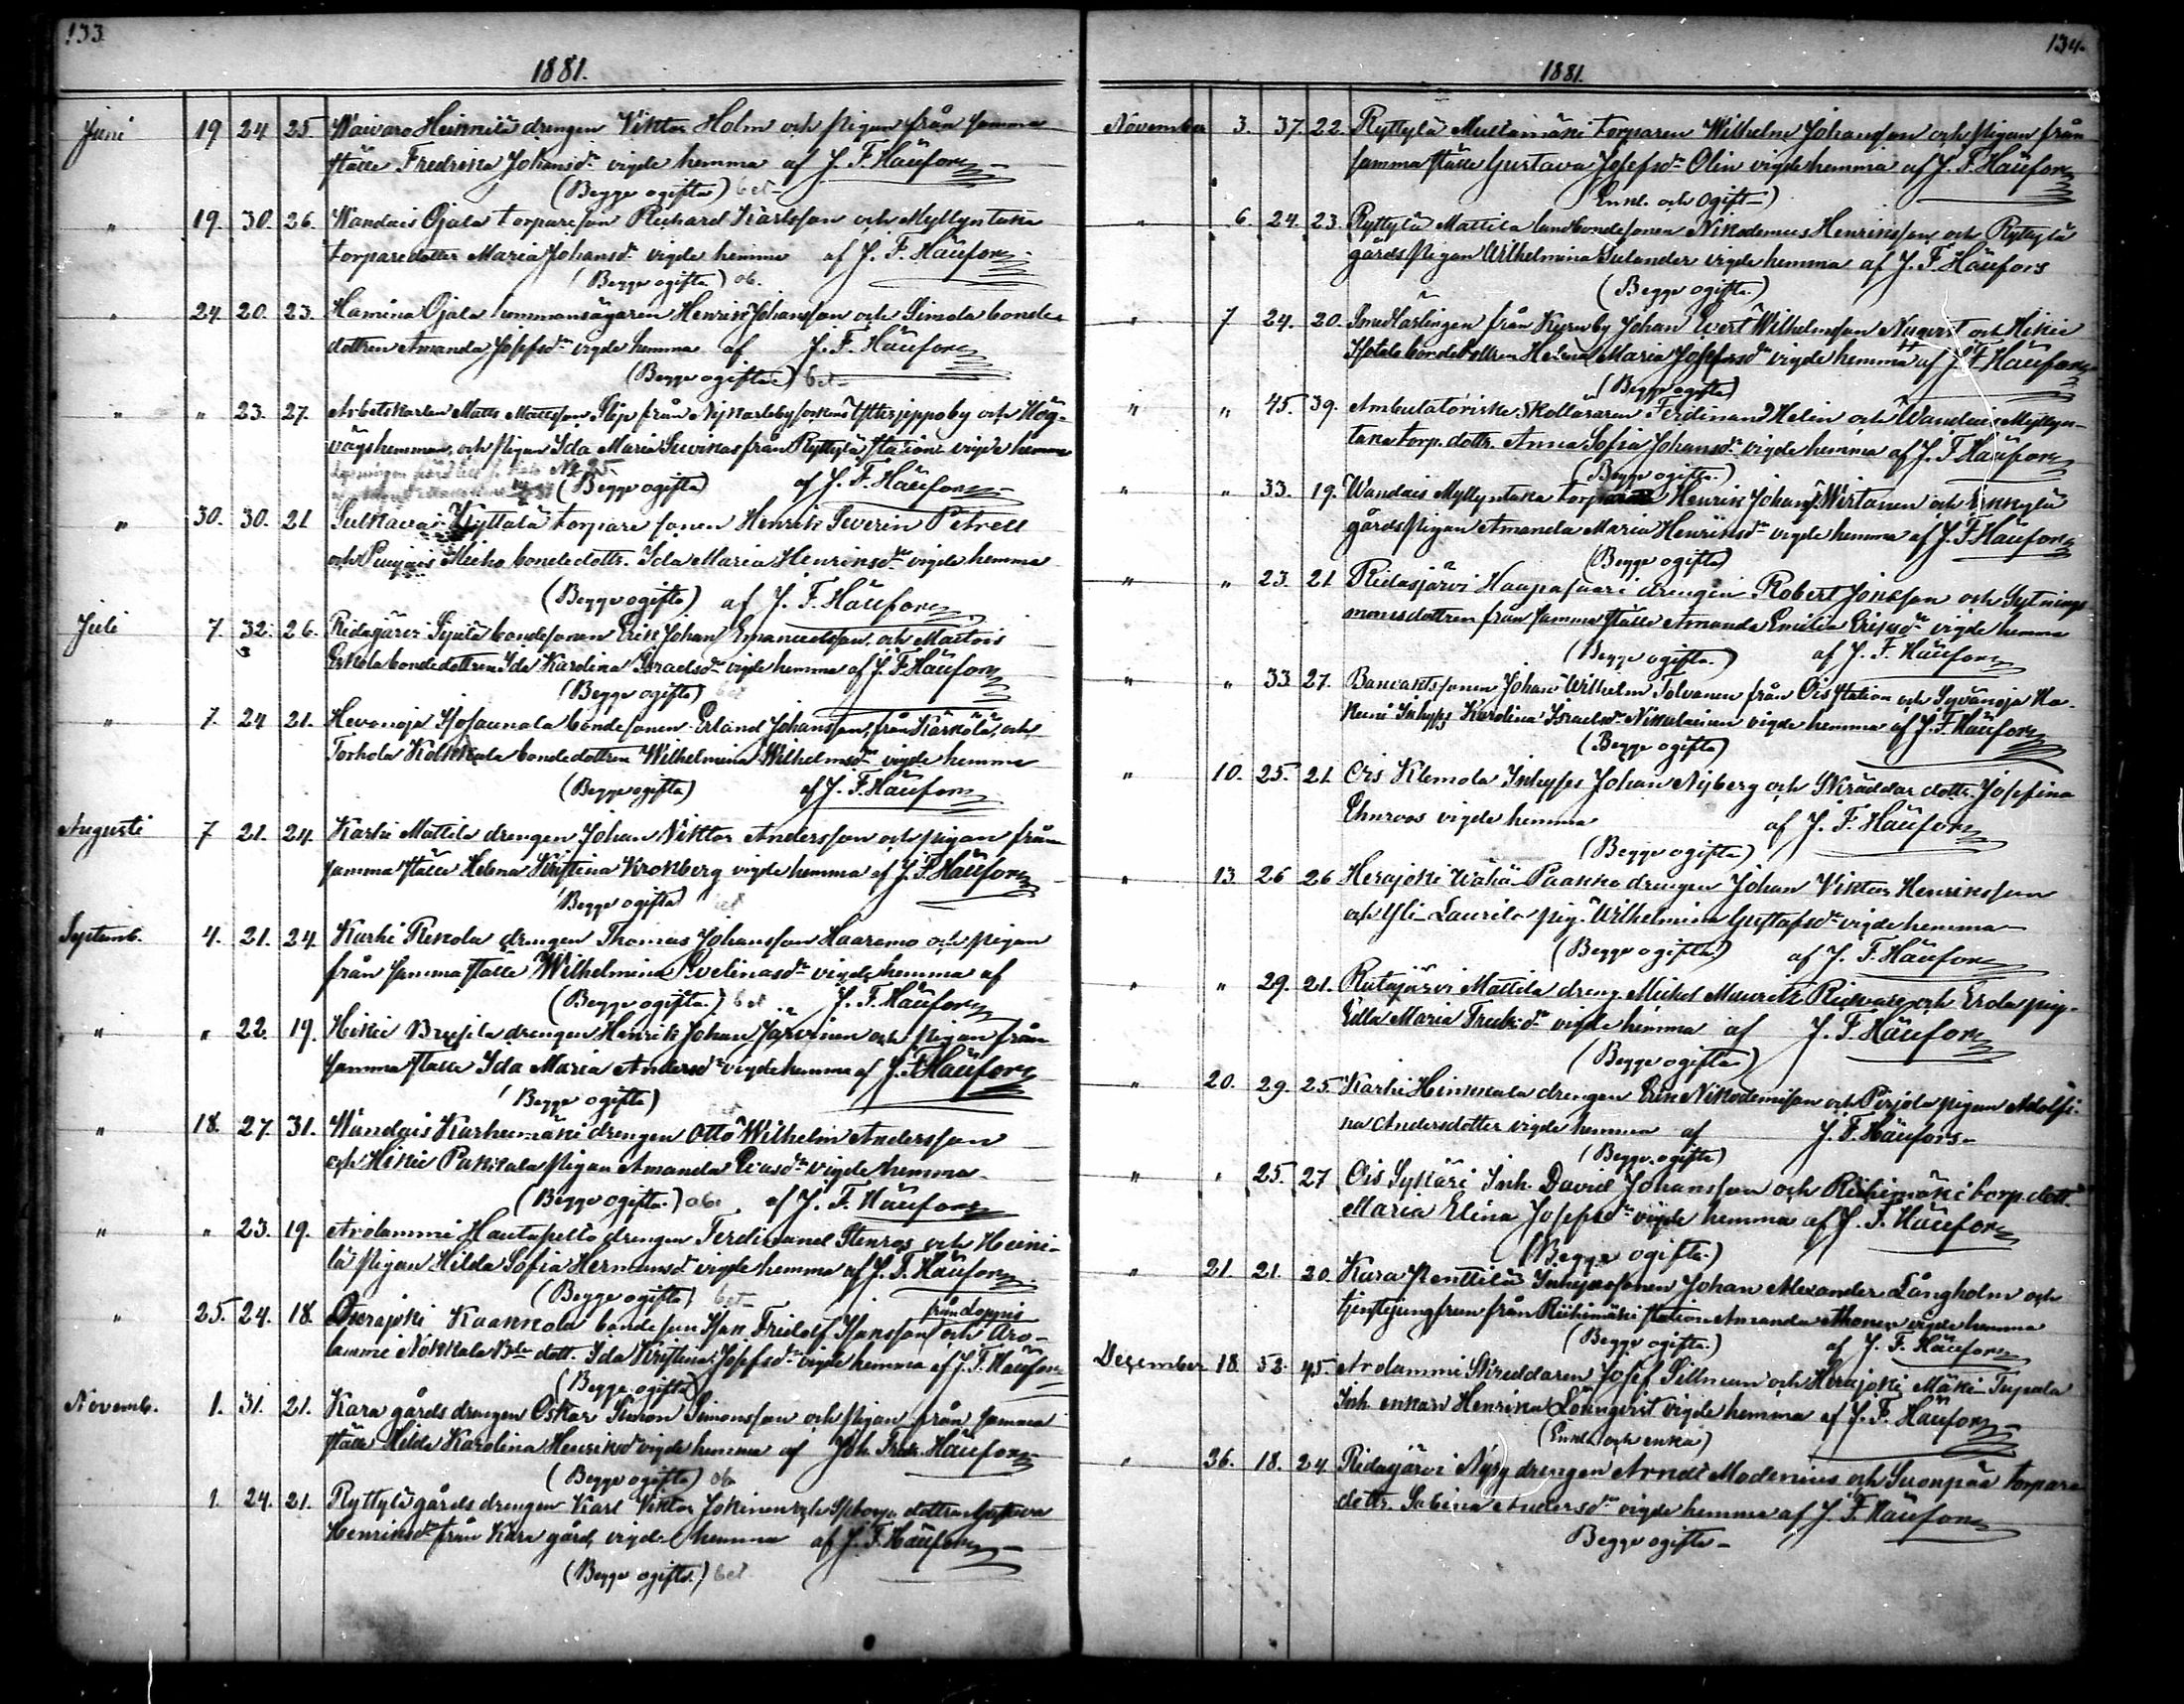 133
1881.
Juni 19 24 25. Waivaro Heikkilä drengen Viktor Holm och pigan från samma
ställe Fredrika Johansdr vigde hemma af J. F. Häufors
(Begge ogifta) bet
" 19. 30. 26. Wandais Ojala torpareson Richard Karlsson och Myllyntaka
torparedotter Maria Johansdr vigde hemma af J. F. Häufors
(Begge ogifta) ob.
" 24. 20. 23. Hamina Ojala hemmansägaren Henrik Johansson och Simola bonde-
dottren Amanda Josefsdr vigde hemma af J. F. Häufors
(Begge ogifta) bet
" " 23. 27. Arbetskarlen Matts Mattsson Slip från Nykarleby socken Ytterjeppo by och Hög-
vägs hemman, och pigan Ida Maria från Ryttylä station vigde hemma
(Begge ogifta) af J. F. Häufors
" 30. 30. 21 Sulkava Kyttälä torpare sonen Henrik Severin Petrell
och Punjais Micko bondedottr. Ida Maria Henriksdr vigde hemma
(Begge ogifta) af J. F. Häufors
Juli 7. 32. 26. Ridasjärvi bondesonen Erik Johan Emanuelsson och Martois
Erkola bondedottren Ida Karolina Israelsdr vigde hemma af J. F. Häufors
(Begge ogifta) bet
" 7. 24 21. Hevonoja bondesonen Erland Johansson, från Kärkölä, och
Torhola Kolkkala bondedottren Wilhelmina Wilhelmsdr vigde hemma
(Begge ogifta) af J. F. Häufors
Augusti 7 21. 24. Karhi Mattila drengen Johan Viktor Andersson och pigan från
samma ställe Helena Kristina Kronberg vigde hemma af J. F. Häufors
(Begge ogifta) bet
Septemb. 4. 21. 24. Karhi Rekola drengen Thomas Johansson Haaramo och pigan
från samma ställe Wilhelmina Evelinasdr vigde hemma af
(Begge ogifta.) bet J. F. Häufors
" " 22. 19. Hikie drengen Henrik Johan Järvinen och pigan från
samma ställe Ida Maria Andersdr vigde hemma af J. F. Häufors
(Begge ogifta)
" 18. 27. 31. Wandais Karhumäki drengen Otto Wilhelm Andersson
och Hikie Pakkala pigan Amanda vigde hemma
(Begge ogifta.) ob. af J. F. Häufors
" " 23. 19. Arolammi Hautapelto drengen Ferdinand Stenros och Heini-
lä pigan Hilda Sofia Hermansdr vigde hemma af J. F. Häufors
(Begge ogifta) bet
" 25. 24. 18. Herajoki Kaakkola bondeson Isak Fridolf Isaksson från Loppis och Aro-
lammi Nokkala dott. Ida Kristina Josefsdr vigde hemma af J. F. Häufors
(Begge ogifta)
Novemb. 1. 31. 21. Kara gårds drengen Oskar Simon Simonsson och pigan från samma
ställe Hilda Karolina Henriksdr vigde hemma af Joh. Fredr. Häufors
(Begge ogifta) ob
1. 24. 21. Ryttylä gårds drengen Karl Viktor Jokinen och dottren Gustava
Henriksdr från Kara gård, vigde hemma af J. F. Häufors
(Begge ogifta.) bet
134.
1881.
November 3. 37. 22. Ryttylä Mustamäki torparen Wilhelm Johansson och pigan från
samma ställe Gustava Josefsdr Olin vigde hemma af J. F. Häufors
Enkl. och Ogift)
" 6. 24. 23. Ryttylä Mattila landbondesonen Nikodemus Henriksson och Ryttylä
gårds pigan Wilhelmina Sulander vigde hemma af J. F. Häufors
(Begge ogifta.)
" 7 24. 20. Smedlärlingen från Kyrkby Johan Evert Wilhelmsson Nyqvist och Hikie
Isotalo bondedottren Helena Maria Josefsdr vigde hemma af J. F. Häufors
(Begge ogifta)
" " 45. 39. Ambulatoriske Skolläraren Ferdinand Helin och Wandais Myllyn-
taka torp. dottr. Anna Sofia Johansdr vigde hemma af J. F. Häufors
(Begge ogifta.)
" " 33. 19. Wandais Myllyntaka torp Henrik Johans. Wirtanen och Erkkylä
gårds pigan Amanda Maria Henriksdr vigde hemma af J. F. Häufors
(Begge ogifta)
" " 23. 21 Ridasjärvi Haapasaari drengen Robert Jonsson och Sytnings
mansdottren från samma ställe Amanda Emilia Eriksdr vigde hemma
(Begge ogifta.) af J. F. Häufors
" " 33 27. Banvaktssonen Johan Wilhelm Tolvanen från Ois station och Syvänoja Ha-
keini Inhyss Karolina Israelsdr Nikulainen vigde hemma af J. F. Häufors
(Begge ogifta)
" 10. 25. 21. Ois Klemola Inhyses Johan Nyberg och Skräddar dottr. Josefina
Ehnroos vigde hemma af J. F. Häufors
(Begge ogifta)
" 13. 26 26 Herajoki Wähä-Paakko drengen Johan Viktor Henriksson
och Yli-Laurila pig. Wilhelmina Gustafsdr vigde hemma
(Begge ogifta.) af J. F. Häufors
" " 29. 21. Ridasjärvi Mattila dreng. Mickel Mauritz och Erola pig.
Edla Maria Fredr.dr vigde hemma af J. F. Häufors
(Begge ogifta)
" 20. 29. 25. Karhi Heikkala drengen Erik Nikodemisson och Perjola pigan Adolfi-
na Andersdotter vigde hemma af J. F. Häufors
(Begge ogifta)
" " 25. 27 Ois Sykäri Inh. David Johansson och Riihimäki torp. dott.
Maria Elina Josefsdr vigde hemma af J. F. Häufors
(Begge ogifta.)
" 21. 21. 20. Kara Penttilä Inhysessonen Johan Alexander Långholm och
tjenstejungfrun från Riihimäki station Amanda Ahonen vigde hemma
(Begge ogifta.) af J. F. Häufors
Dezember 18. 52. 45. Arolammi Skreddaren Josef Sillman och Herajoki Mäki-Tupala
Inh. enkan Henrika Löunqvist vigde hemma af J. F. Häufors
(Enkl. och enka)
" 26. 18. 24. Ridasjärvi Nyby drengen Arndt Modenius och Suonpää torpare
dottr. Sabina Andersdr vigde hemma af J. F. Häufors
Begge ogifta